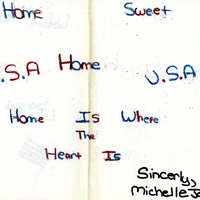 Home Sweet
.S.A Home U.S.A
Home Is Where
The
Heart Is
Sincerly,
Michelle J